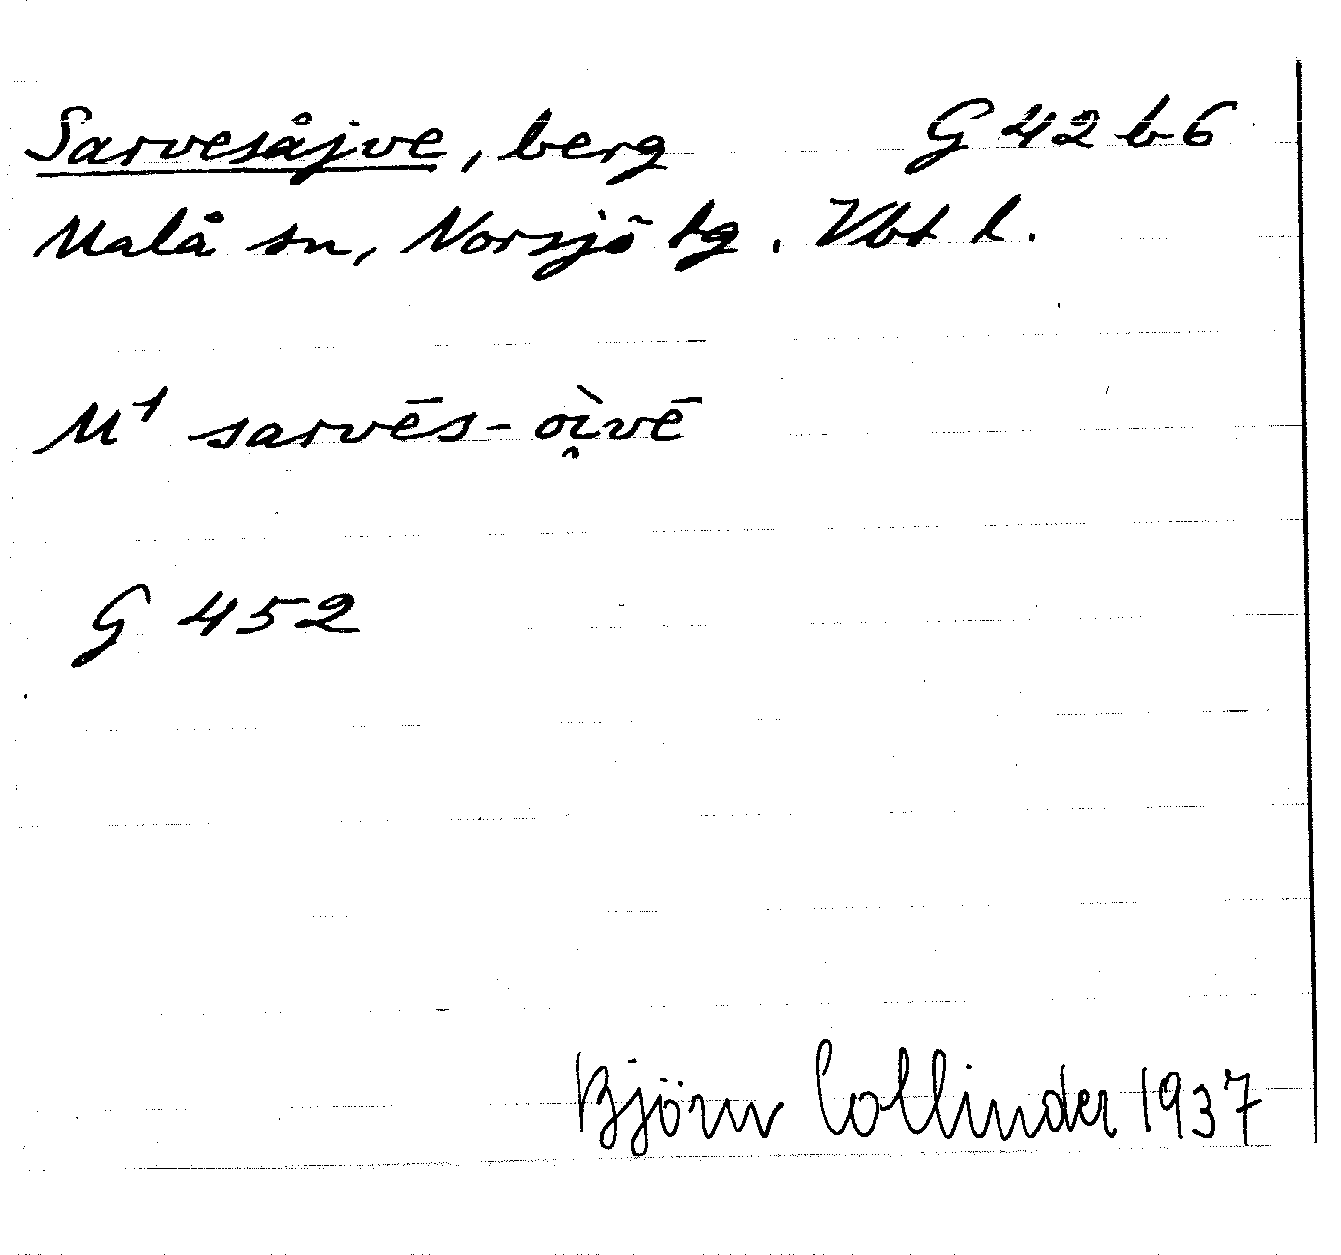 Sarvesåjve, berg G 42 b 6
Malå sn, Norsjö tg. Vbt l.
M¹ sarvēs-oì̯vē
G 452
Björn Collinder 1937